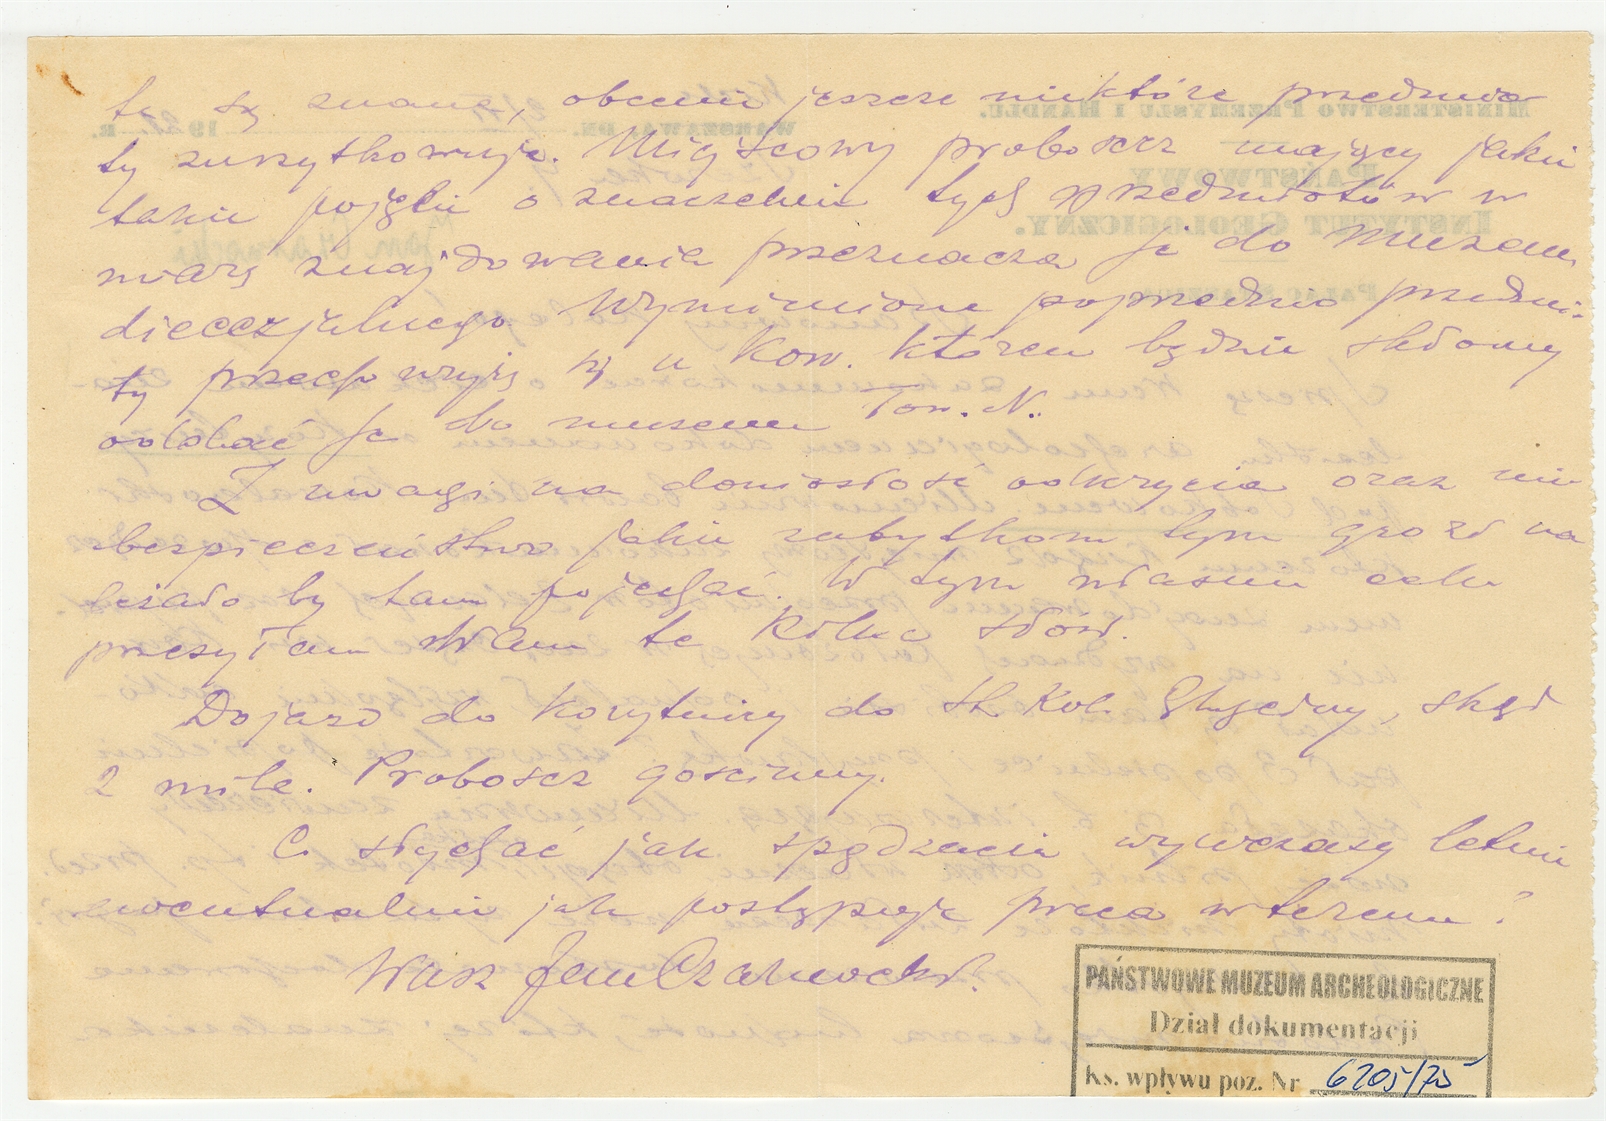 te są znane, obecnie jeszcze niektóre przedmio
ty zużytkowuje. Miejscowy proboszcz mający jakie
takie pojęcie o znaczeniu tych przedmiotów w
miarę znajdowania przeznacza je do Muzeum
diecezjalnego. Wymienione poprzednio przedmio-
ty przechowuję się u Kow. którzem będzie skłonny
oddać je do muzeum Tow. N.
Z uwagi na doniosłość odkrycia oraz nie
bezpieczeństwo jakie zabytkom tym grozi na
leżało by tam pojechać. W tym właśnie celu
przesyłam Wam te kilka słów.
Dojazd do Korytnicy do st. kol. skąd
2 mile. Proboszcz gościnny.
C. słychać jak spędzacie wywczasy letnie
ewentualnie jak postępuje praca w terenie?
Wasz Jan Czarnocki.
PAŃSTWOWE MUZEUM ARCHEOLOGICZNE
Dział dokumentacji
Ks. wpływu poz. Nr 6205/75